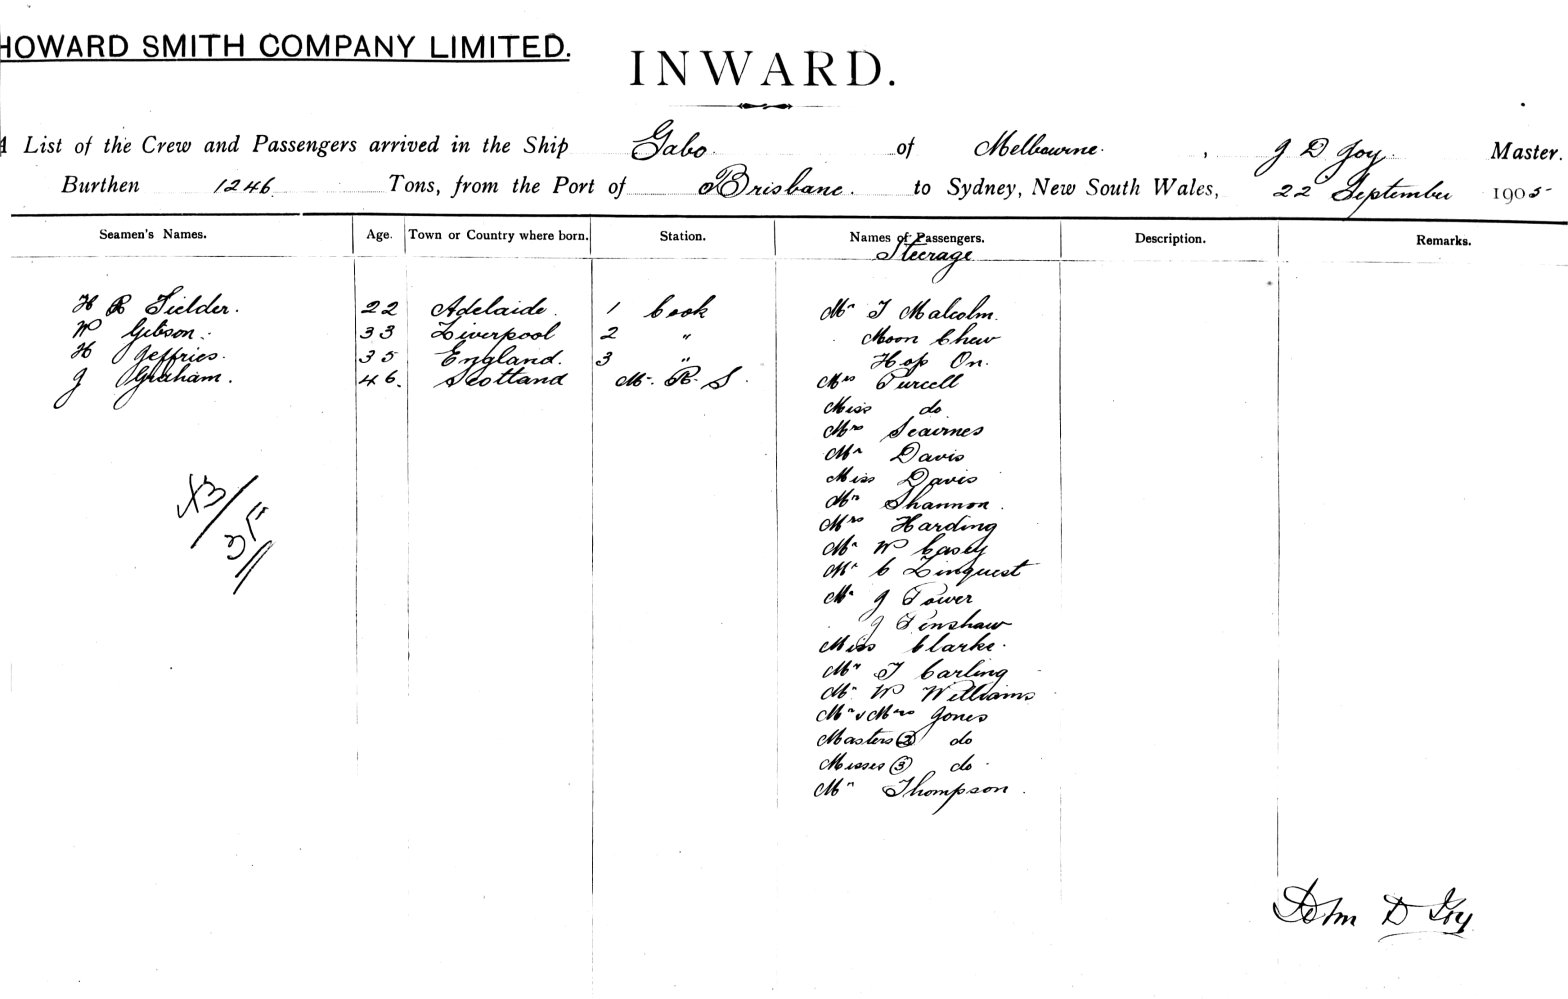 HOWARD SMITH COMPANY LIMITED.
INWARD.
A List of the Crew and Passengers arrived in the Ship Gabo of Melbourne, J D Joy Master.
Burthen 1246 Tons, from the Port of Brisbane. to Sydney, New South Wales, 22 September 1905
Seamen's Names. Age. Town or Country where born. Station. Names of Passengers. Description. Remarks.
Steerage
H R Fielder. 22 Adelaide. 1 Cook Mr T Malcolm.
W Gibson. 33 Liverpool 2 " Moon Chew
H Jeffries. 35 England. 3 " Hop On.
J Graham. 46. Scotland M. R. S. Mrs Purcell
Miss do
Mrs Scairnes
Mr Davis
Miss Davis
Mr Shannon.
Mrs Harding
Mr W Casey
Mr C Linquest
Mr J Tower
J Tinshaw
Miss Clarke.
Mr T Carling
Mr W Williams
Mr & Mrs Jones
Masters (3) do
Misses (3) do
Mr Thompson.
43/
35//
John D Joy